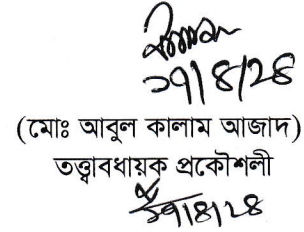 ২৭/৪/২৪
(মোঃ আবুল কালাম আজাদ)
তত্ত্বাবধায়ক প্রকৌশলী